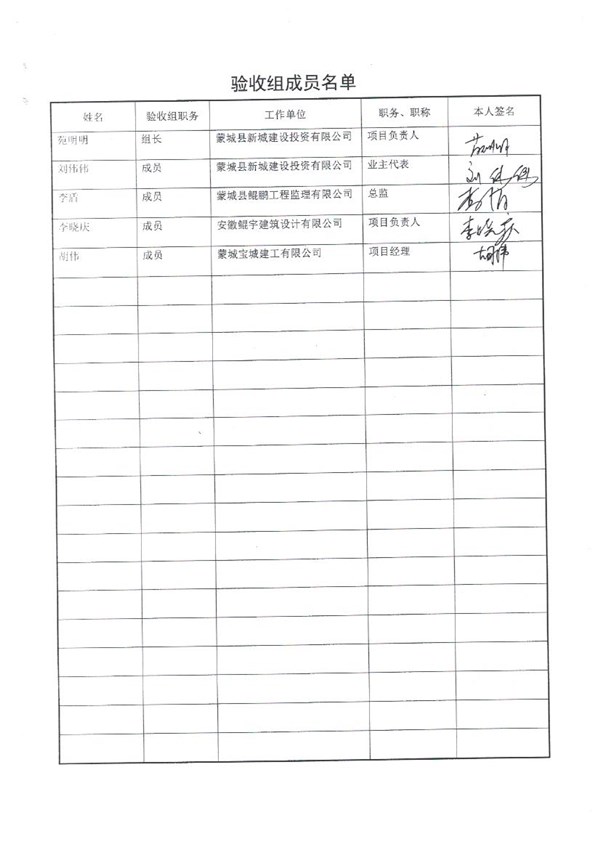 验收组成员名单
姓名 验收组职务 工作单位 职务、职称 本人签名
苑明明 组长 蒙城县新城建设投资有限公司 项目负责人
刘伟伟 成员 蒙城县新城建设投资有限公司 业主代表 刘伟伟
李盾 成员 蒙城县鲲鹏工程监理有限公司 总监
李晓庆 成员 安徽鲲宇建筑设计有限公司 项目负责人 李晓庆
胡伟 成员 蒙城宝城建工有限公司 项目经理 胡伟